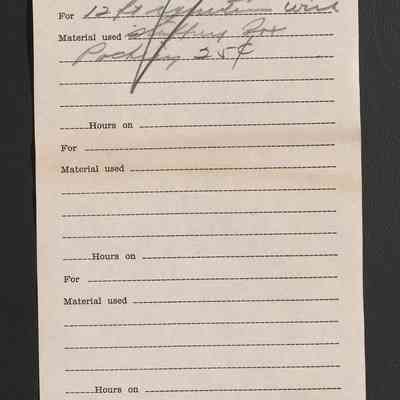 For 12 ft Ignition Wire
Material used Stuffing Box
Packing 25¢
Hours on
For
Material used
Hours on
For
Material used
Hours on